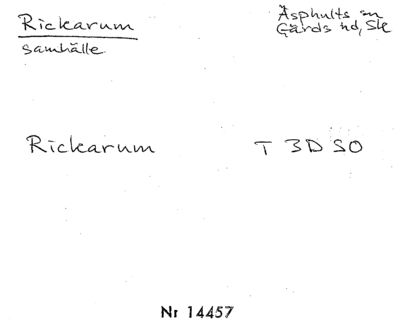 Rickarum
samhälle
Äsphults sn
Gärds hd, Sk
Rickarum T 3D SO
Nr 14457